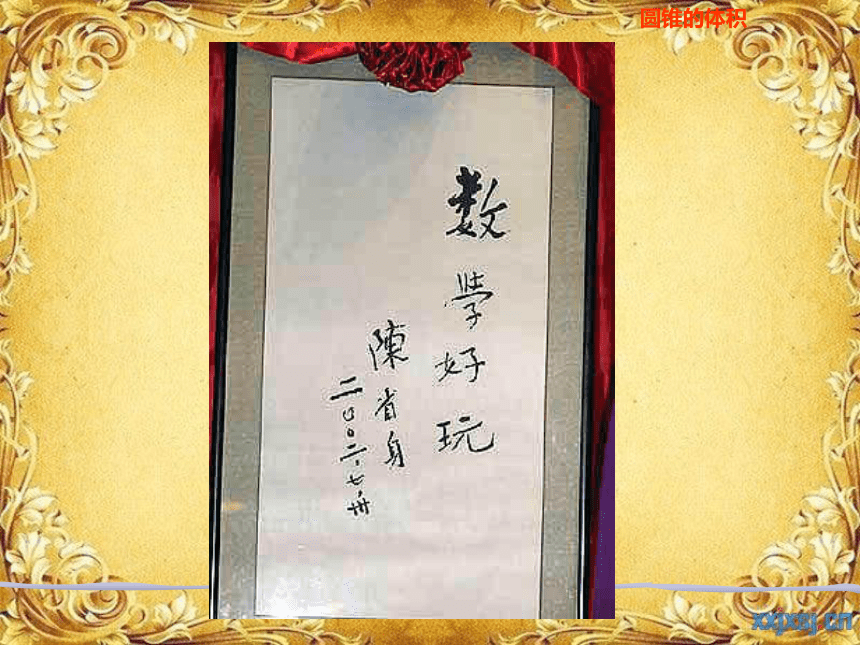 圆锥的体积
數
學
好
玩
陳省身
二〇〇二.七.卅
xxjxsj.cn